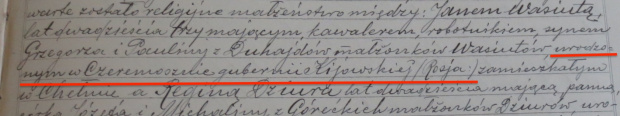 warte zostało religijne małżeństwo między: Janem Wasiutą
lat dwadzieścia trzy mającym, kawalerem, robotnikiem, synem
Grzegorza i Pauliny z Duhajdów małżonków Wasiutów, urodzo-
nym w Czeremosznie gubernii Kijowskiej /Rosja/ zamieszkałym
w Chełmie, a Reginą Dziura lat dwadzieścia mającą, panną,
Józefa i Michaliny z Góreckich małżonków Dziurów uro-